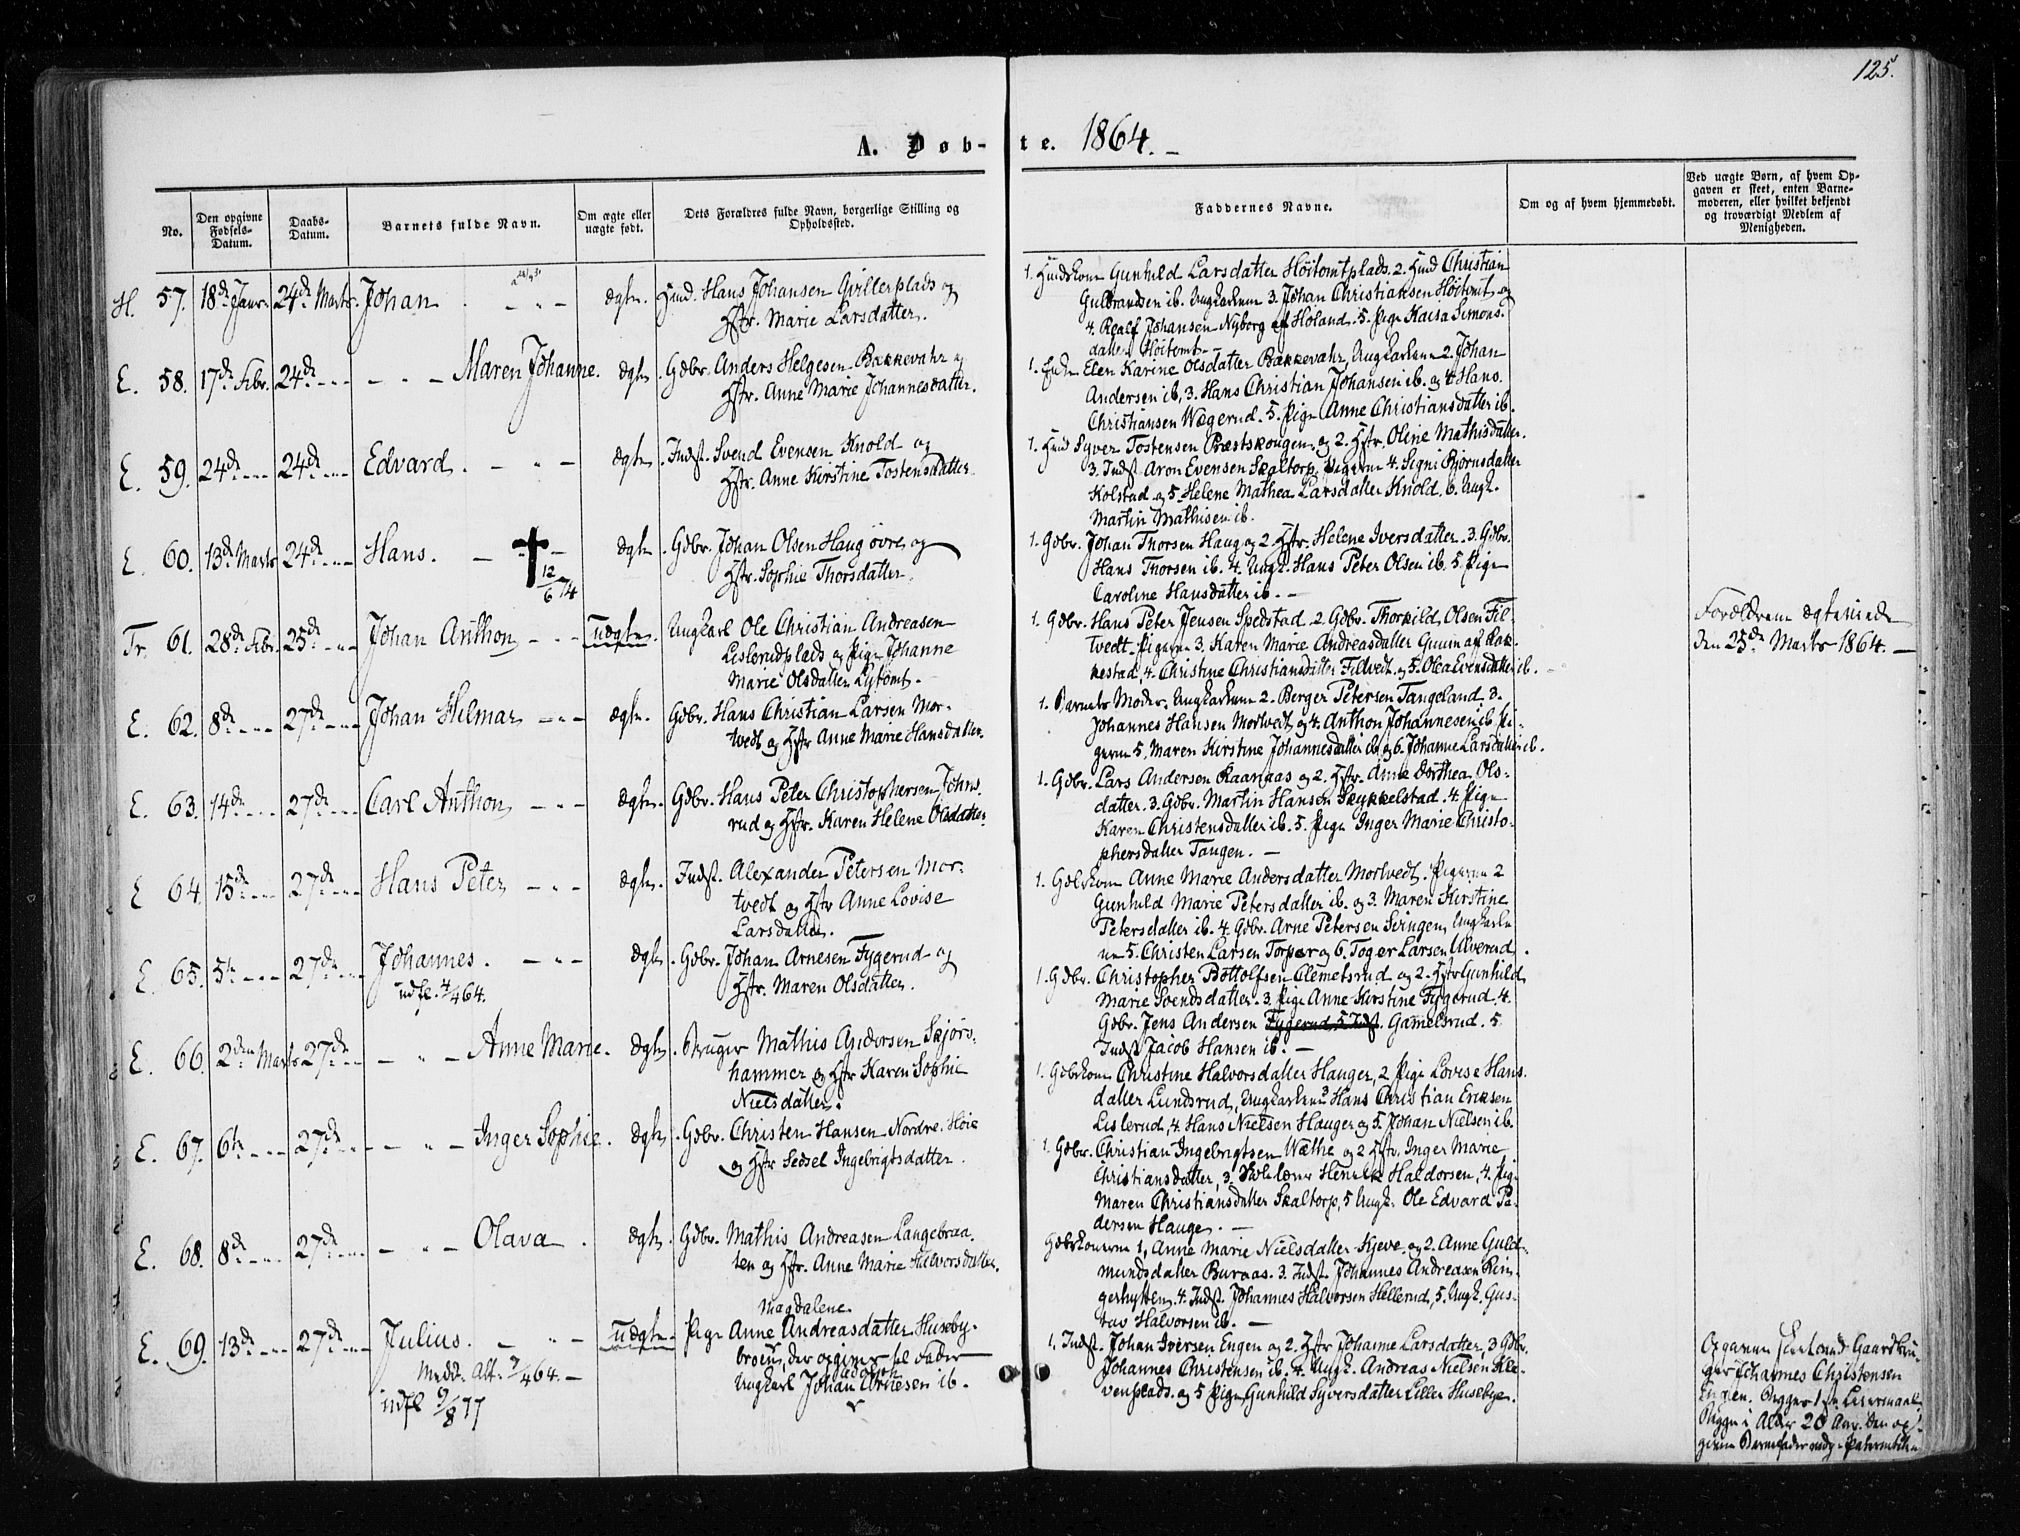 125.
A. Døb-te. 1864.
No.
Den opgivne Fødsels-Datum.
Daabs-Datum.
Barnets fulde Navn.
Om ægte eller uægte født.
Dets Forældres fulde Navn, borgerlige Stilling og Opholdssted.
Faddernes Navne.
Om og af hvem hjemmedøbt.
Ved uægte Børn, af hvem Op-
gaven er skeet, enten Barne-
moderen, eller hvilket bekjendt
og troværdigt Medlem af
Menigheden.
H. 57. 18de Januar. 24de Marts. Johan ægte. Huusmd. Hans Johansen Gillerplads og
Hstr. Marie Larsdatter.
1. Huusmdskone Gunhild Larsdatter Høitomtplads. 2. Huusmd Christian
Gulbrandsen ib. Ungkarlene 3. Johan Christiansen Høitomt og
4. Roalf Johansen Nyborg af Høland. 5. Pige Kaisa Simons-
datter Høitomt.
E. 58. 17de Febr. 24de Maren Johanne. ægte. Gdbr. Anders Helgesen Bakkevahr og
Hstr. Anne Marie Johannesdatter.
1. Enke Elen Karine Olsdatter Bakkevahr, Ungkarlene 2. Johan
Andersen ib, 3. Hans Christian Johansen ib. og 4. Hans
Christiansen Wægerud. 5. Pige Anne Christiansdatter ib.
E. 59. 24de 24de Edvard. ægte. Indst. Svend Evensen Knold og
Hstr. Anne Kirstine Tostensdatter
1. Huusmd Syver Tostensen Præstskougen og 2. Hstr. Oline Mathisdatter.
3. Indst. Aron Evensen Skaltorp. Pigerne 4. Signi Bjørnsdatter
Kolstad og 5. Helene Mathea Larsdatter Knold. 6. Ungk.
Martin Mathisen ib.
E. 60. 13de Marts 24de Hans. 12/6 74 ægte. Gdbr. Johan Olsen Haug øvre og
Hstr. Sophie Thorsdatter.
1. Gdbr. Johan Thorsen Haug og 2. Hstr. Helene Iversdatter. 3. Gdbr.
Hans Thorsen ib. 4. Ungk. Hans Peter Olsen ib. 5. Pige
Caroline Hansdatter ib.
Tr. 61. 28de Febr. 25de Johan Anthon uægte. Ungkarl Ole Christian Andreasen
Lislerudplads og Pige Johanne
Marie Olsdatter Lytomt.
1. Gdbr. Hans Peter Jensen Spedstad. 2. Gdbr. Thorkild Olsen Fil-
tvedt. Pigerne 3. Karen Marie Andreasdatter Guuin af Rak-
kestad, 4. Christine Christiansdatter Fildvedt og 5. Olea Evensdatter ib.
Forældrene ægteviede
den 25de Marts 1864.
E. 62. 8de 27de Johan Hilmar ægte. Gdbr. Hans Christian Larsen Mor-
tvedt og Hstr Anne Marie Hansdatter.
1. Barnets Moder. Ungkarlene 2. Berger Petersen Tangeland. 3.
Johannes Hansen Mortvedt og 4. Anthon Johannesen ib. Pi-
gerne 5. Maren Kirstine Johannesdatter ib og 6. Johanne Larsdatter ib.
E. 63. 14de 27de Carl Anthon ægte. Gdbr. Hans Peter Christophersen Johns-
rud og Hstr. Karen Helene Olsdatter.
1. Gdbr. Lars Andersen Raanaas og 2. Hstr. Anne Dorthea Ols-
datter. 3. Gdbr. Martin Hansen Skykkelstad. 4. Pige
Karen Christensdatter ib. 5. Pige Inger Marie Christo-
phersdatter Tangen.
E 64. 15de 27de Hans Peter ægte. Indst. Alexander Petersen Mor-
tvedt og Hstr Anne Lovise
Larsdatter.
1. Gdbrskone Anne Marie Andersdatter Mortvedt. Pigerne 2
Gunhild Marie Petersdatter ib. og 3. Maren Kirstine
Petersdatter ib. 4. Gdbr. Arne Petersen Svingen, Ungkarle
ne 5. Christen Larsen Torper og 6. Toger Larsen Ulverud.
E. 65. 5te 27de Johannes. ægte. Gdbr. Johan Arnesen Fygerud og
udfl. 4/4 64. Hstr. Maren Olsdatter.
1. Gdbr. Christopher Bottolfsen Clemetsrud og 2. Hstr Gunhild
Marie Svendsdatter. 3. Pige Anne Kirstine Fygerud. 4.
Gdbr. Jens Andersen Fygerud 5 Indst. Gamelsrud. 5
Indst Jacob Hansen ib.
E. 66. 2den Marts 27de Anne Marie. ægte. Bruger Mathis Andersen Skjørs-
hammer og Hstr Karen Sophie
Nielsdatter.
1. Gdbrkone Christine Halvorsdatter Hauger, 2 Pige Lovise Hans-
datter Lundsrud, Ungkarlene 3 Hans Christian Eriksen
Lislerud, 4. Hans Nielsen Hauger og 5. Johan Nielsen ib.
E. 67. 6te 27de Inger Sophie. ægte. Gdbr. Christen Hansen Nordre Høie
og Hstr Sedsel Ingebrigtsdatter.
1. Gdbr. Christian Ingebrigtsen Wæthe og 2 Hstr. Inger Marie
Christiansdatter, 3. Skolelærer Henrik Haldorsen, 4. Pige
Maren Christiansdatter Skaltorp, 5 Ungk. Ole Edvard Pe-
dersen Hauge.
E. 68. 8de 27de Olava. ægte. Gdbr. Mathis Andreasen Langebraa-
ten og Hstr. Anne Marie Halvorsdatter.
Gdbrkonerne 1, Anne Marie Nielsdatter Kjeve og 2. Anne Guld-
mundsdatter Buraas. 3. Indst. Johannes Andreasen Rin-
gerhytten. 4. Indst. Johannes Halvorsen Hellerud, 5. Ungk. Gus-
tav Halvorsen ib.
E. 69. 13de 27de Julius. uægte. Pige Anne Magdalene Andreasdatter Huseby-
Medd. Att. 2/4 64. broen, der opgiver til Fader
indfl 9/8 77 Ungkarl Johan Adolph Arnesen ib.
1. Indst. Johan Iversen Engen og 2. Hstr Johanne Larsdatter, 3 Gdbr.
Johannes Christensen ib. 4. Ungk. Andreas Nielsen Kle-
venplads. og 5 Pige Gunhild Syversdatter Lille Husebye.
Opgaven skeet ved Gaardbru-
ger Johannes Christensen
Engen. Begges 1ste Leiermaal.
Begge i Alder 20 Aar. Den op-
givne Barnefader vedg. Paterniteten